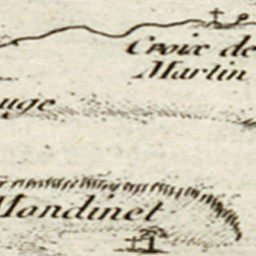 Croix de
Martin
uge
Mandinet